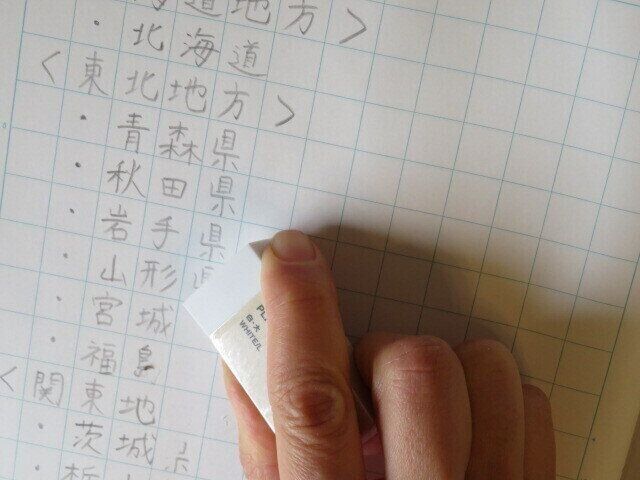 道地方＞
・北海道
＜東北地方＞
・青森県
・秋田県
・岩手県
・山形県
・宮城
・福島
＜関東地
・茨城県
・栃
白・大
WHITE/L